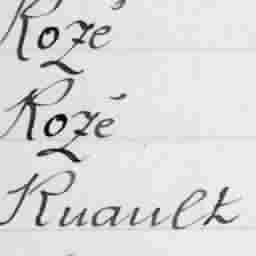 Rozé
Rozé
Ruault